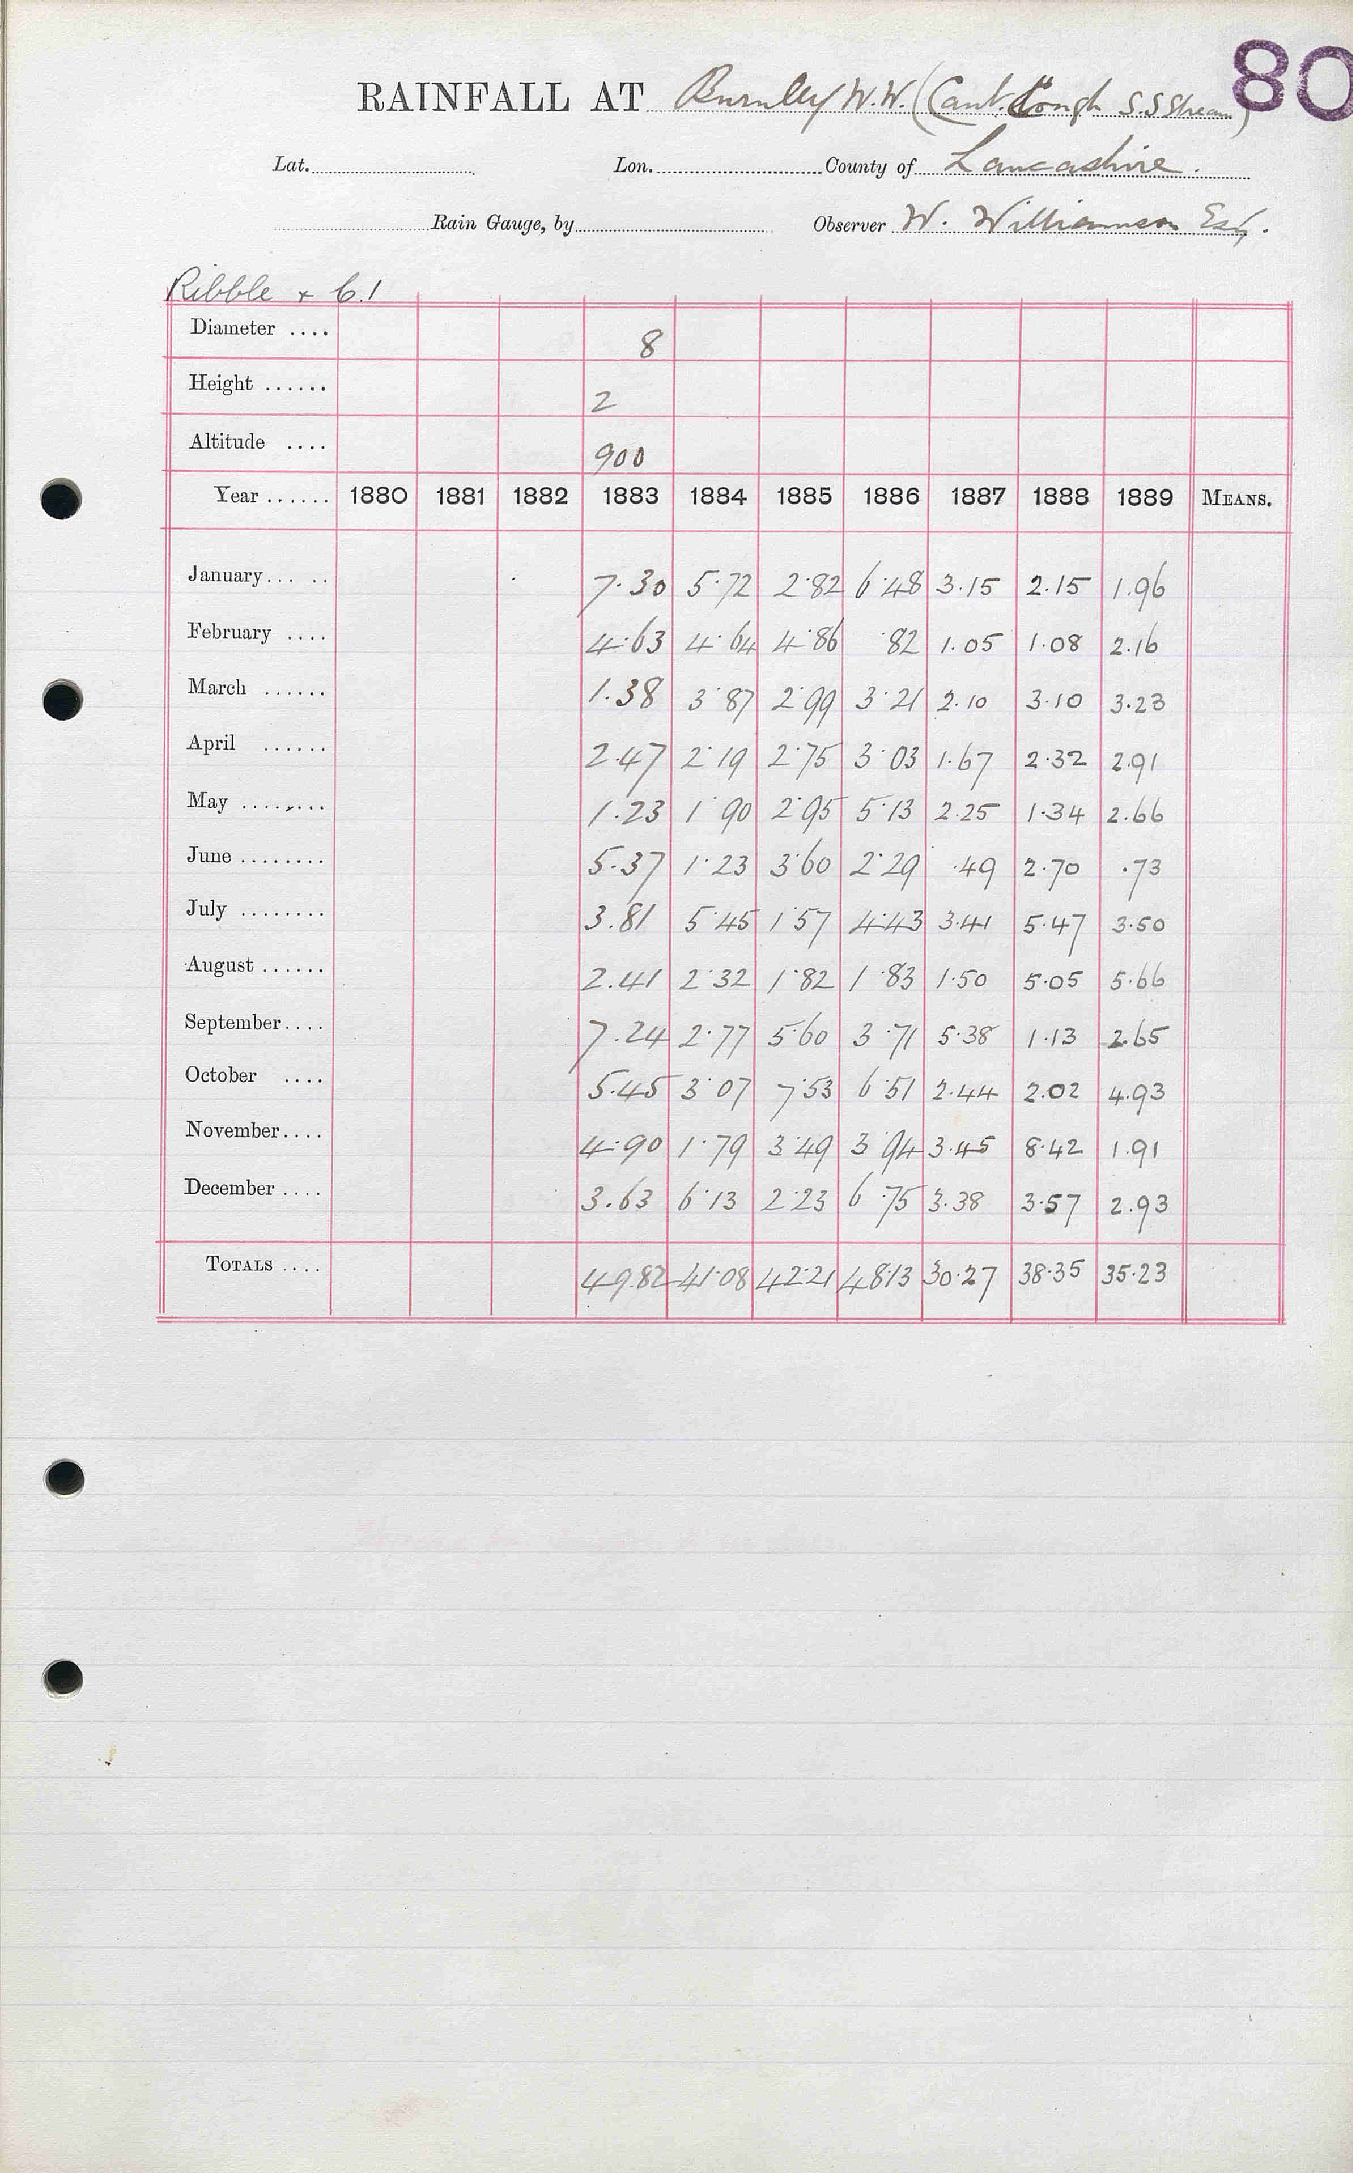 80
RAINFALL AT Burnley W.W. (Cant. Clough S.S Stream)
Lat. Lon. County of Lancashire.
Rain Gauge, by Observer W. Williamson Esq.
Ribble + 6.1
Diameter .... 8
Height ...... 2
Altitude .... 900
Year ...... 1880 1881 1882 1883 1884 1885 1886 1887 1888 1889 MEANS.
January... .. 7.30 5.72 2.82 6.48 3.15 2.15 1.96
February .... 4.63 4.64 4.86 .82 1.05 1.08 2.16
March ...... 1.38 3.87 2.99 3.21 2.10 3.10 3.23
April ...... 2.47 2.19 2.75 3.03 1.67 2.32 2.91
May ........ 1.23 1.90 2.95 5.13 2.25 1.34 2.66
June ........ 5.37 1.23 3.60 2.29 .49 2.70 .73
July ........ 3.81 5.45 1.57 4.43 3.41 5.47 3.50
August ...... 2.41 2.32 1.82 1.83 1.50 5.05 5.66
September.... 7.24 2.77 5.60 3.71 5.38 1.13 2.65
October .... 5.45 3.07 7.53 6.51 2.44 2.02 4.93
November.... 4.90 1.79 3.49 3.94 3.45 8.42 1.91
December .... 3.63 6.13 2.23 6.75 3.38 3.57 2.93
TOTALS .... 49.82 41.08 42.21 48.13 30.27 38.35 35.23